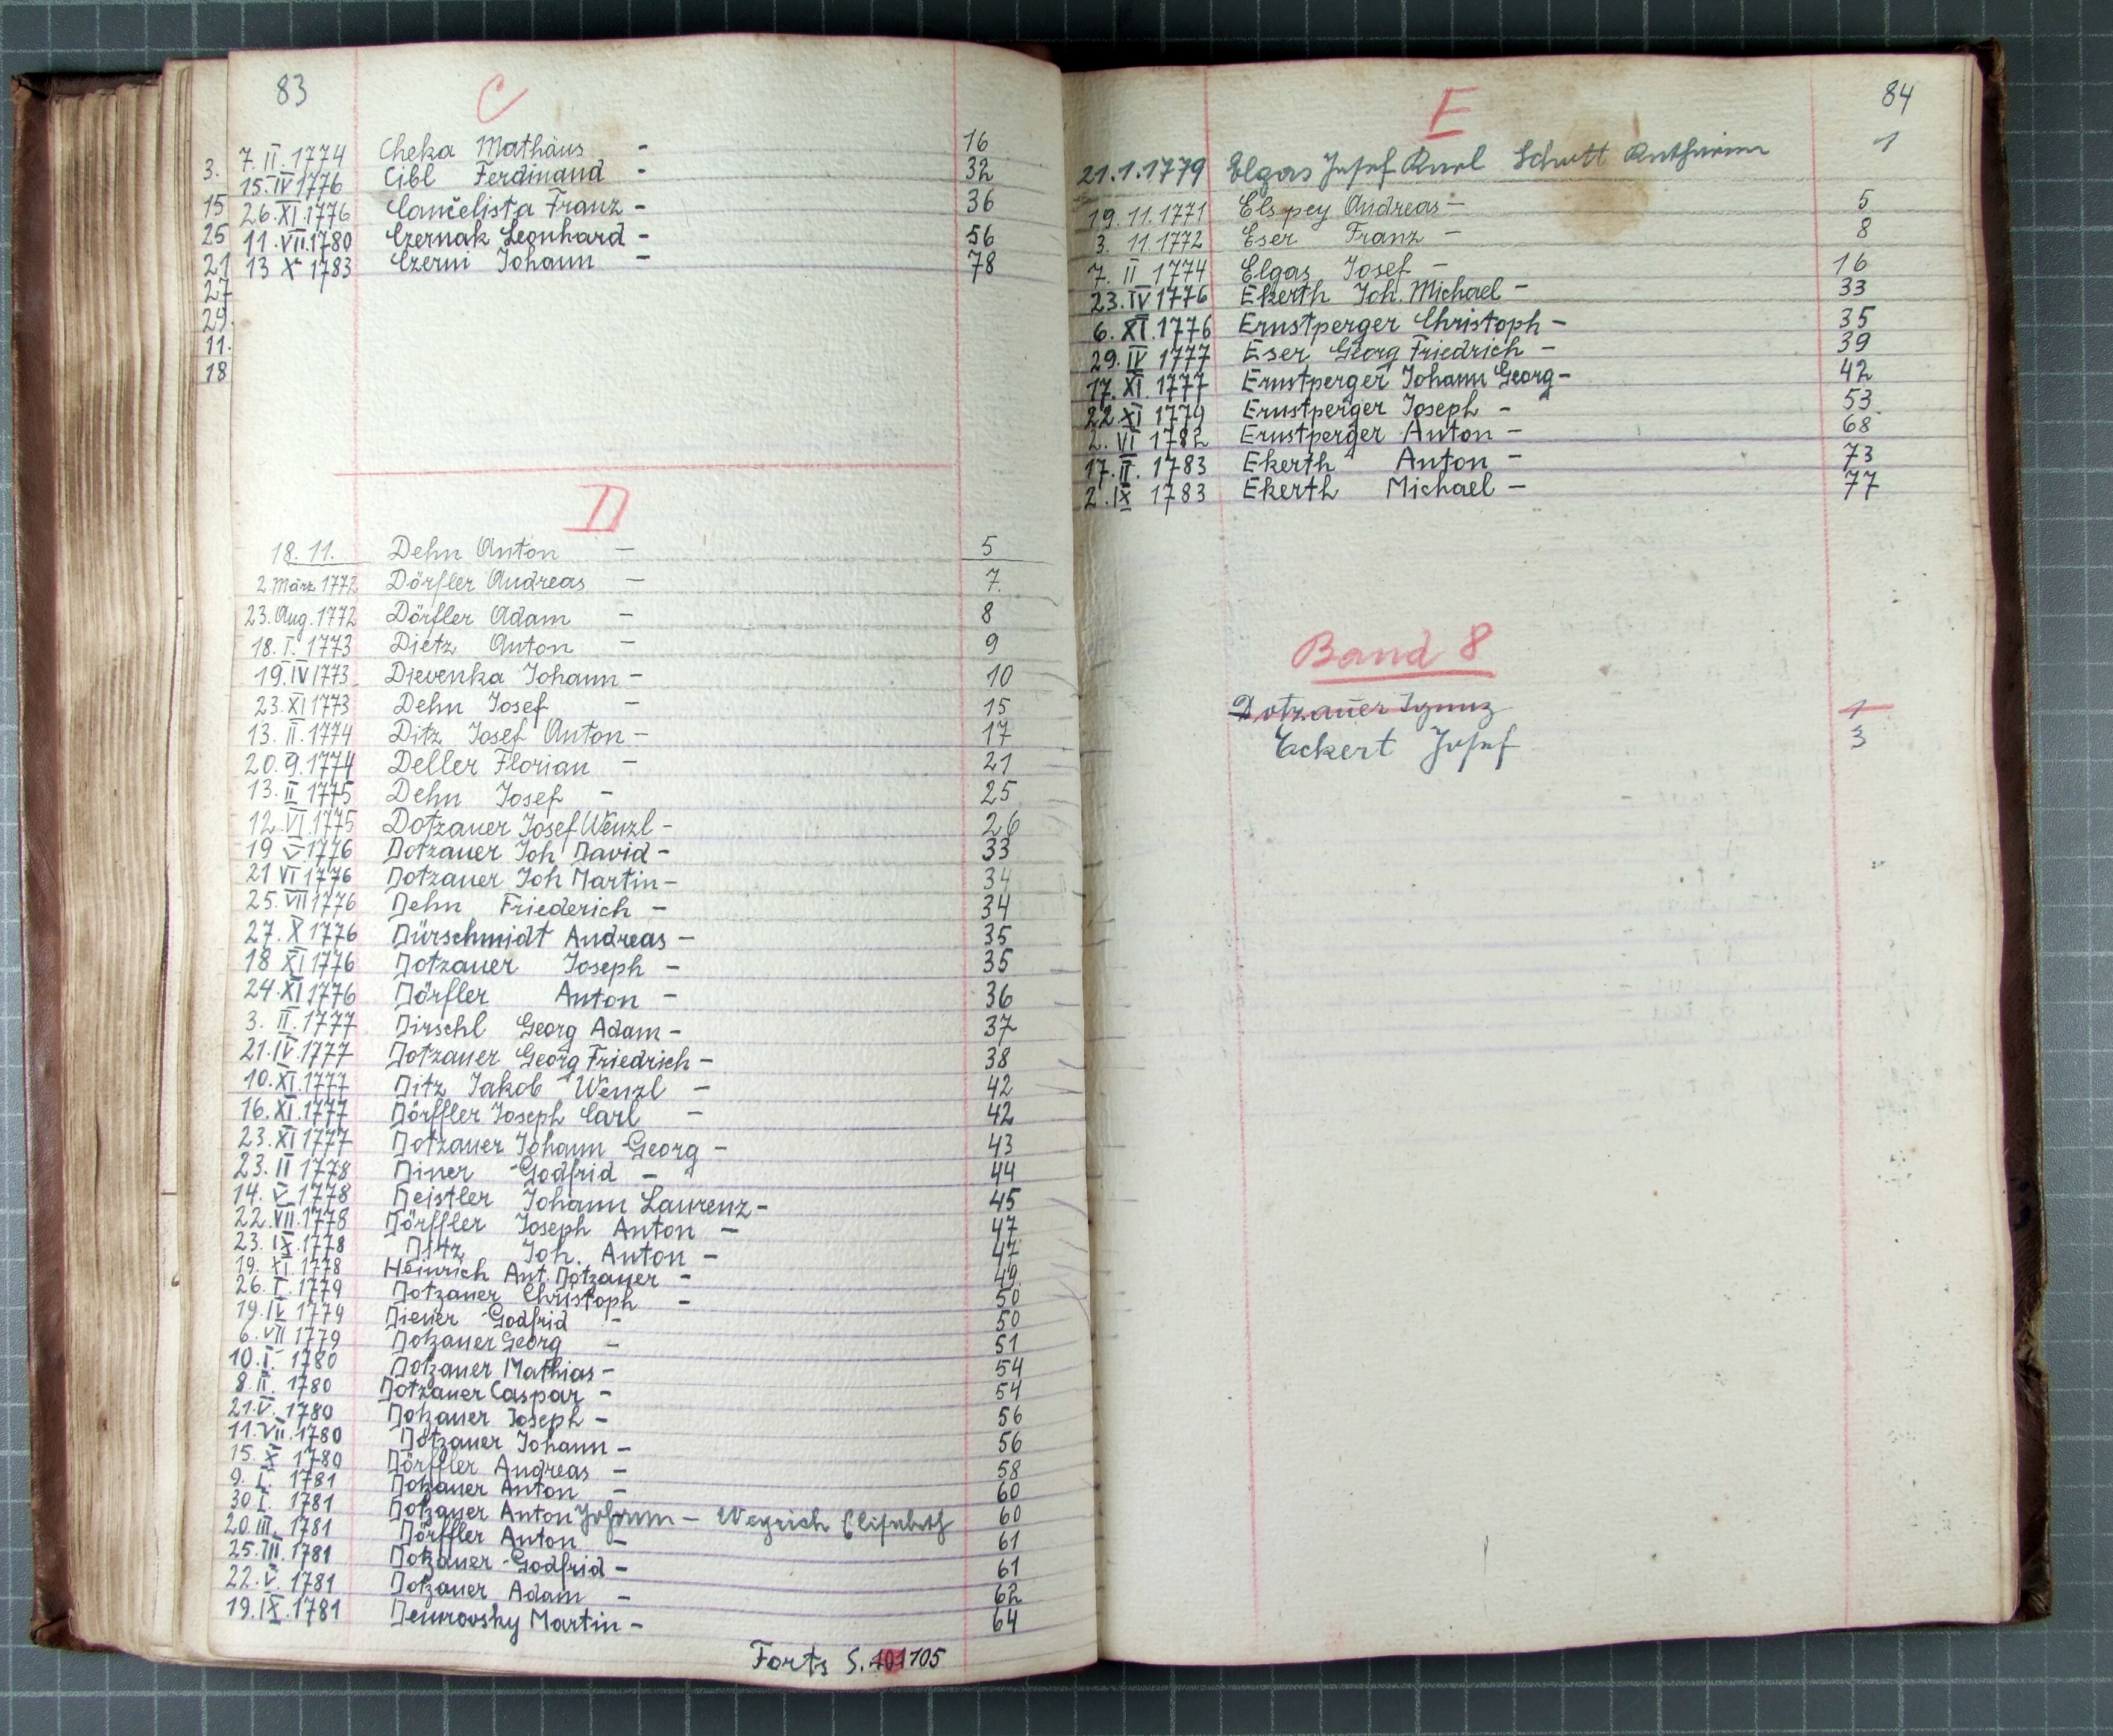 83
C
7. II. 1774 Cheka Mathäus - 16
15. IV 1776 Cibl Ferdinand - 32
26. XI. 1776 Cančelista Franz - 36
11. VII. 1780 Czernak Leonhard - 56
13 X 1783 Czerni Johann - 78
3.
15
25
21
27
29.
11.
18
D
18. 11. Dehn Anton - 5
2. März 1772 Dörfler Andreas - 7.
23. Aug. 1772 Dörfler Adam - 8
18. I. 1773 Dietz Anton - 9
19. IV 1773 Dievenka Johann - 10
23. XI 1773 Dehn Josef - 15
13. II. 1774 Ditz Josef Anton - 17
20. 9. 1774 Deller Florian - 21
13. II 1775 Dehn Josef - 25
12. VI. 1775 Dotzauer Josef Wenzl - 26
19 V 1776 Dotzauer Joh David - 33
21 VI 1776 Dotzauer Joh Martin - 34
25. VII 1776 Dehn Friederich - 34
27. X 1776 Dürschmidt Andreas - 35
18 XI 1776 Dotzauer Joseph - 35
24. XI 1776 Dörfler Anton - 36
3. II. 1777 Dirschl Georg Adam - 37
21. IV. 1777 Dotzauer Georg Friedrich - 38
10. XI. 1777 Ditz Jakob Wenzl - 42
16. XI. 1777 Dörffler Joseph Carl - 42
23. XI 1777 Dotzauer Johann Georg - 43
23. II 1778 Diner Godfrid - 44
14. V. 1778 Deistler Johann Laurenz - 45
22. VII. 1778 Dörffler Joseph Anton - 47
23. IX. 1778 Ditz Joh. Anton - 47
19. XI. 1778 Heinrich Ant. Dotzauer - 49.
26. I. 1779 Dotzauer Christoph - 50
19. IV 1779 Diener Godfrid - 50
6. VII 1779 Dotzauer Georg - 51
10. I. 1780 Dotzauer Mathias - 54
8. II. 1780 Dotzauer Caspar - 54
21. V. 1780 Dotzauer Joseph - 56
11. VII. 1780 Dotzauer Johann - 56
15. X 1780 Dörffler Andreas - 58
9. I. 1781 Dotzauer Anton - 60
30 I. 1781 Dotzauer Anton Johann - Weyrich Elisabeth 60
20. III. 1781 Dörffler Anton - 61
25. III. 1781 Dotzauer Godfrid - 61
22. V. 1781 Dotzauer Adam - 62
19. IX. 1781 Demrovsky Martin - 64
Forts S. 105
84
E
21. 1. 1779 Elgas Josef Karl Schutt Katharina 1
19. 11. 1771 Elspey Andreas - 5
3. 11. 1772 Eser Franz - 8
7. II 1774 Elgas Josef - 16
23. IV 1776 Ekerth Joh. Michael - 33
6. XI. 1776 Ernstperger Christoph - 35
29. IV 1777 Eser Georg Friedrich - 39
17. XI. 1777 Ernstperger Johann Georg - 42
22 XI 1779 Ernstperger Joseph - 53
2. VI 1782 Ernstperger Anton - 68
17. II. 1783 Ekerth Anton - 73
2. IX 1783 Ekerth Michael - 77
Band 8
Dotzauer Ignaz 1
Eckert Josef 3